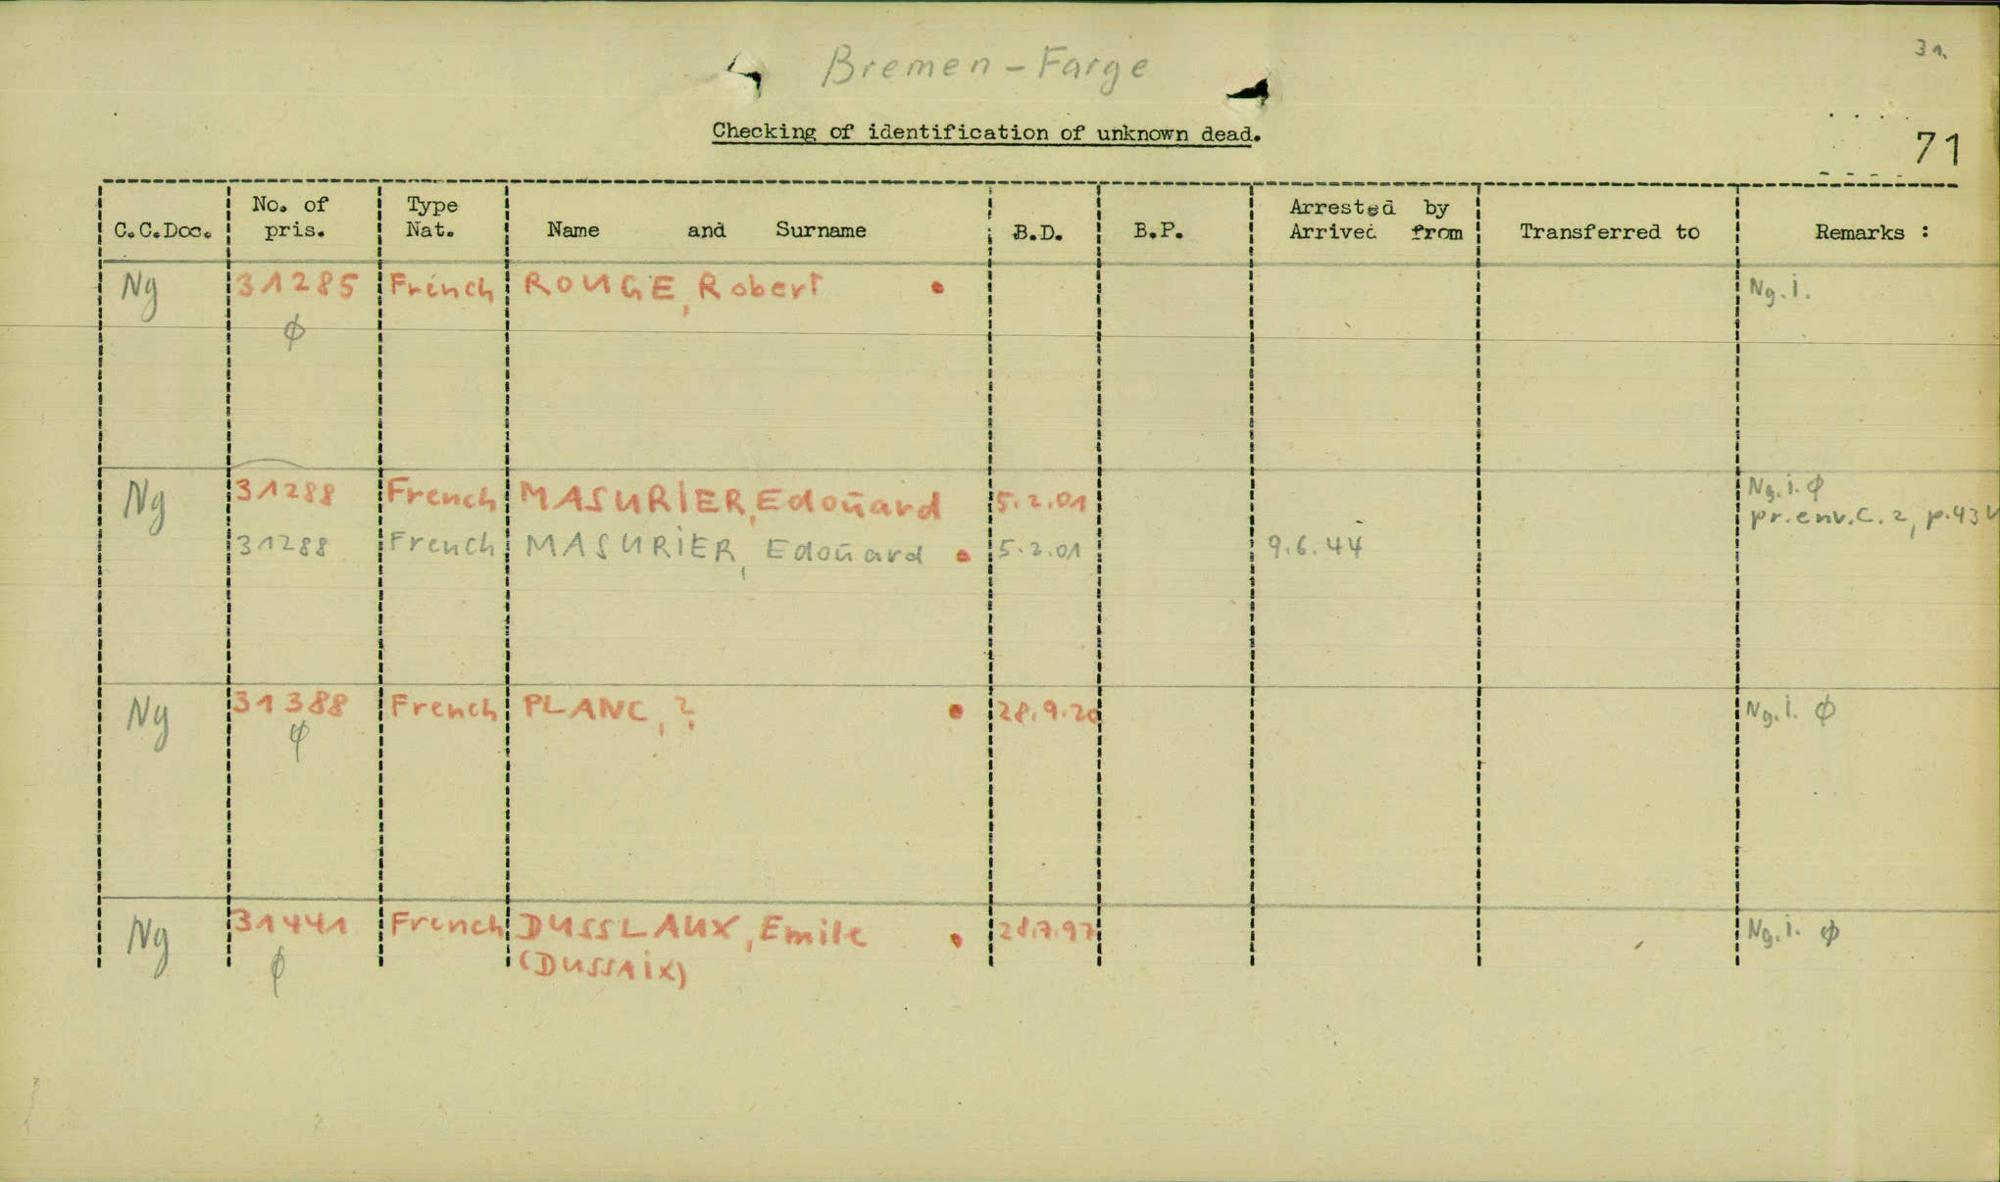 31.
Bremen-Farge
Checking of identification of unknown dead.
71
C.C.Doc. No. of pris. Type Nat. Name and Surname B.D. B.P. Arrested by Arrived from Transferred to Remarks :
Ng 31285 French ROUGE, Robert Ng.i.
ϕ
Ng 31288 French MASURIER, Edoūard 5.2.01 Ng.i.ϕ
pr.env.C.2, p.43
31288 French MASURIER, Edoūard 5.2.01 9.6.44
Ng 31388 French PLANC, ? 28.9.20 Ng.i. ϕ
ϕ
Ng 31441 French DUSSLAUX, Emile 28.7.97 Ng.i. ϕ
ϕ (DUSSAIX)